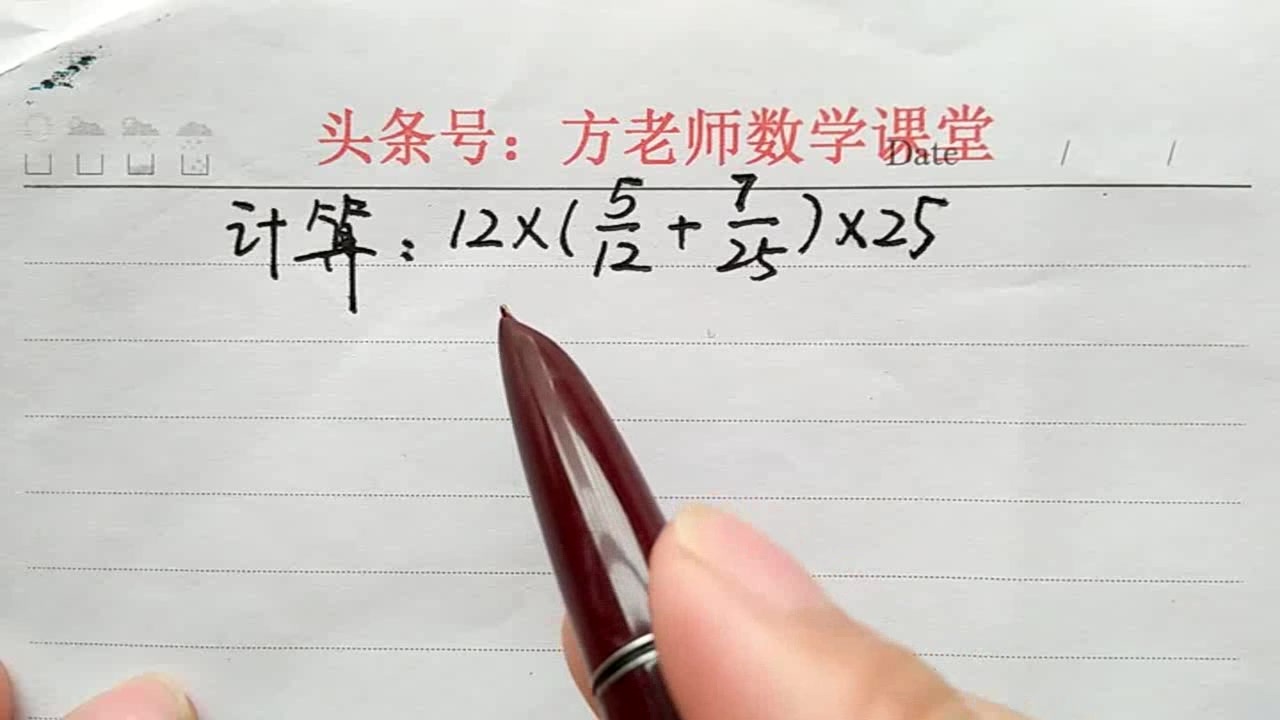 头条号：方老师数学课堂
Date / /
计算：12×(5/12+7/25)×25